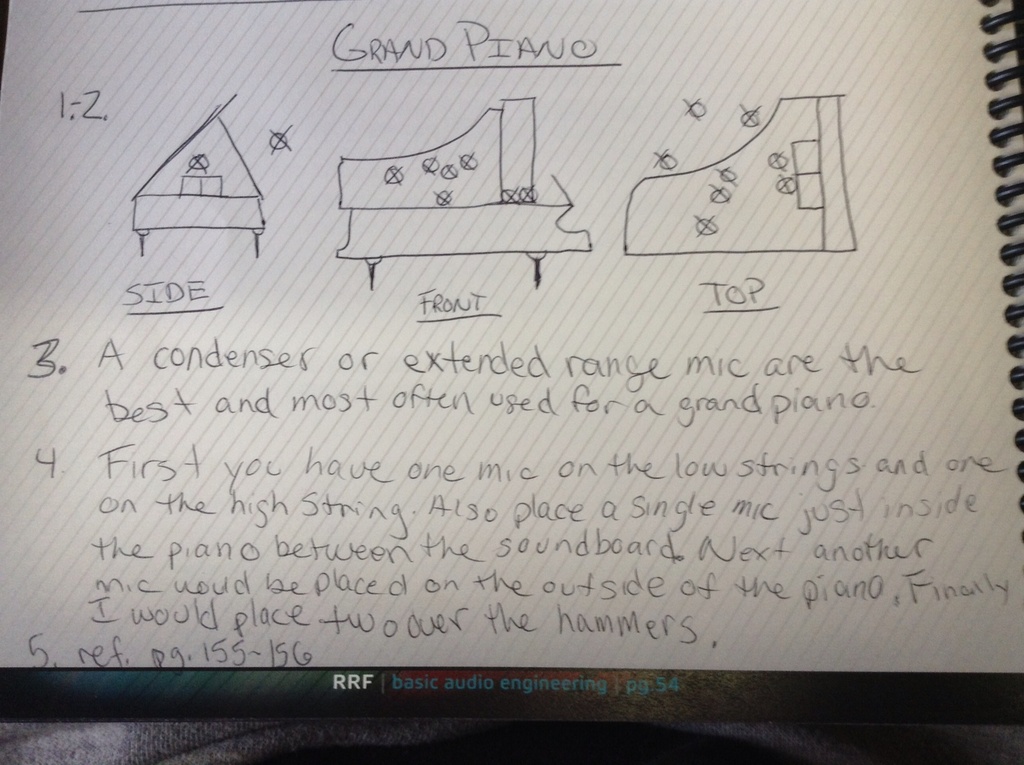 GRAND PIANO
1-2.
SIDE
FRONT
TOP
3. A condenser or extended range mic are the
best and most often used for a grand piano.
4. First you have one mic on the low strings and one
on the high string. Also place a single mic just inside
the piano between the soundboard. Next another
mic woud be placed on the outside of the piano. Finally
I would place two over the hammers.
5. ref. pg. 155-156
RRF | basic audio engineering | pg.54